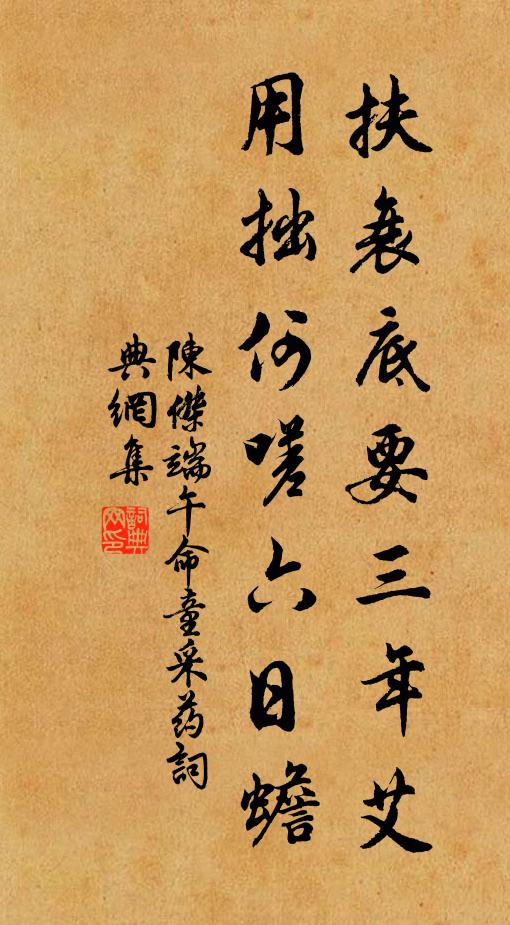 扶衰底要三年艾
用拙何嗟六日蟾
陳傑端午命童采药詞
典網集
詞典网印